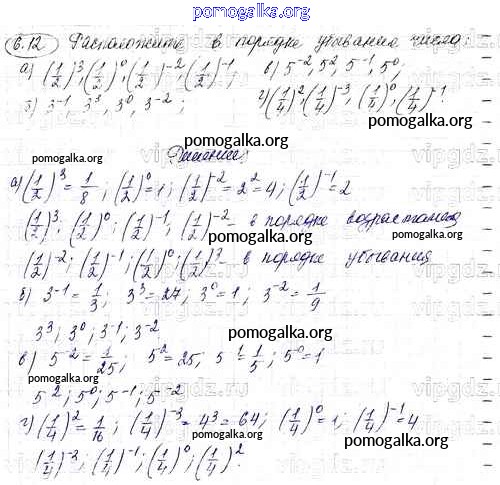 pomogalka.org
6.12 Расположите в порядке убывания числа:
а) (1/2)^3, (1/2)^0, (1/2)^-2, (1/2)^-1; в) 5^-2, 5^2, 5^-1, 5^0;
б) 3^-1, 3^3, 3^0, 3^-2; г) (1/4)^2, (1/4)^-3, (1/4)^0, (1/4)^-1.
pomogalka.org
pomogalka.org
Решение:
pomogalka.org pomogalka.org
а) (1/2)^3 = 1/8; (1/2)^0 = 1; (1/2)^-2 = 2^2 = 4; (1/2)^-1 = 2
(1/2)^3; (1/2)^0; (1/2)^-1, (1/2)^-2 – в порядке возрастания
pomogalka.org
(1/2)^-2; (1/2)^-1; (1/2)^0; (1/2)^3 – в порядке убывания
б) 3^-1 = 1/3; 3^3 = 27; 3^0 = 1; 3^-2 = 1/9
3^3; 3^0; 3^-1; 3^-2
pomogalka.org
в) 5^-2 = 1/25; 5^2 = 25, 5^-1 = 1/5; 5^0 = 1
pomogalka.org
5^2; 5^0; 5^-1; 5^-2
pomogalka.org
г) (1/4)^2 = 1/16; (1/4)^-3 = 4^3 = 64; (1/4)^0 = 1; (1/4)^-1 = 4
pomogalka.org
(1/4)^-3; (1/4)^-1; (1/4)^0; (1/4)^2.
pomogalka.org